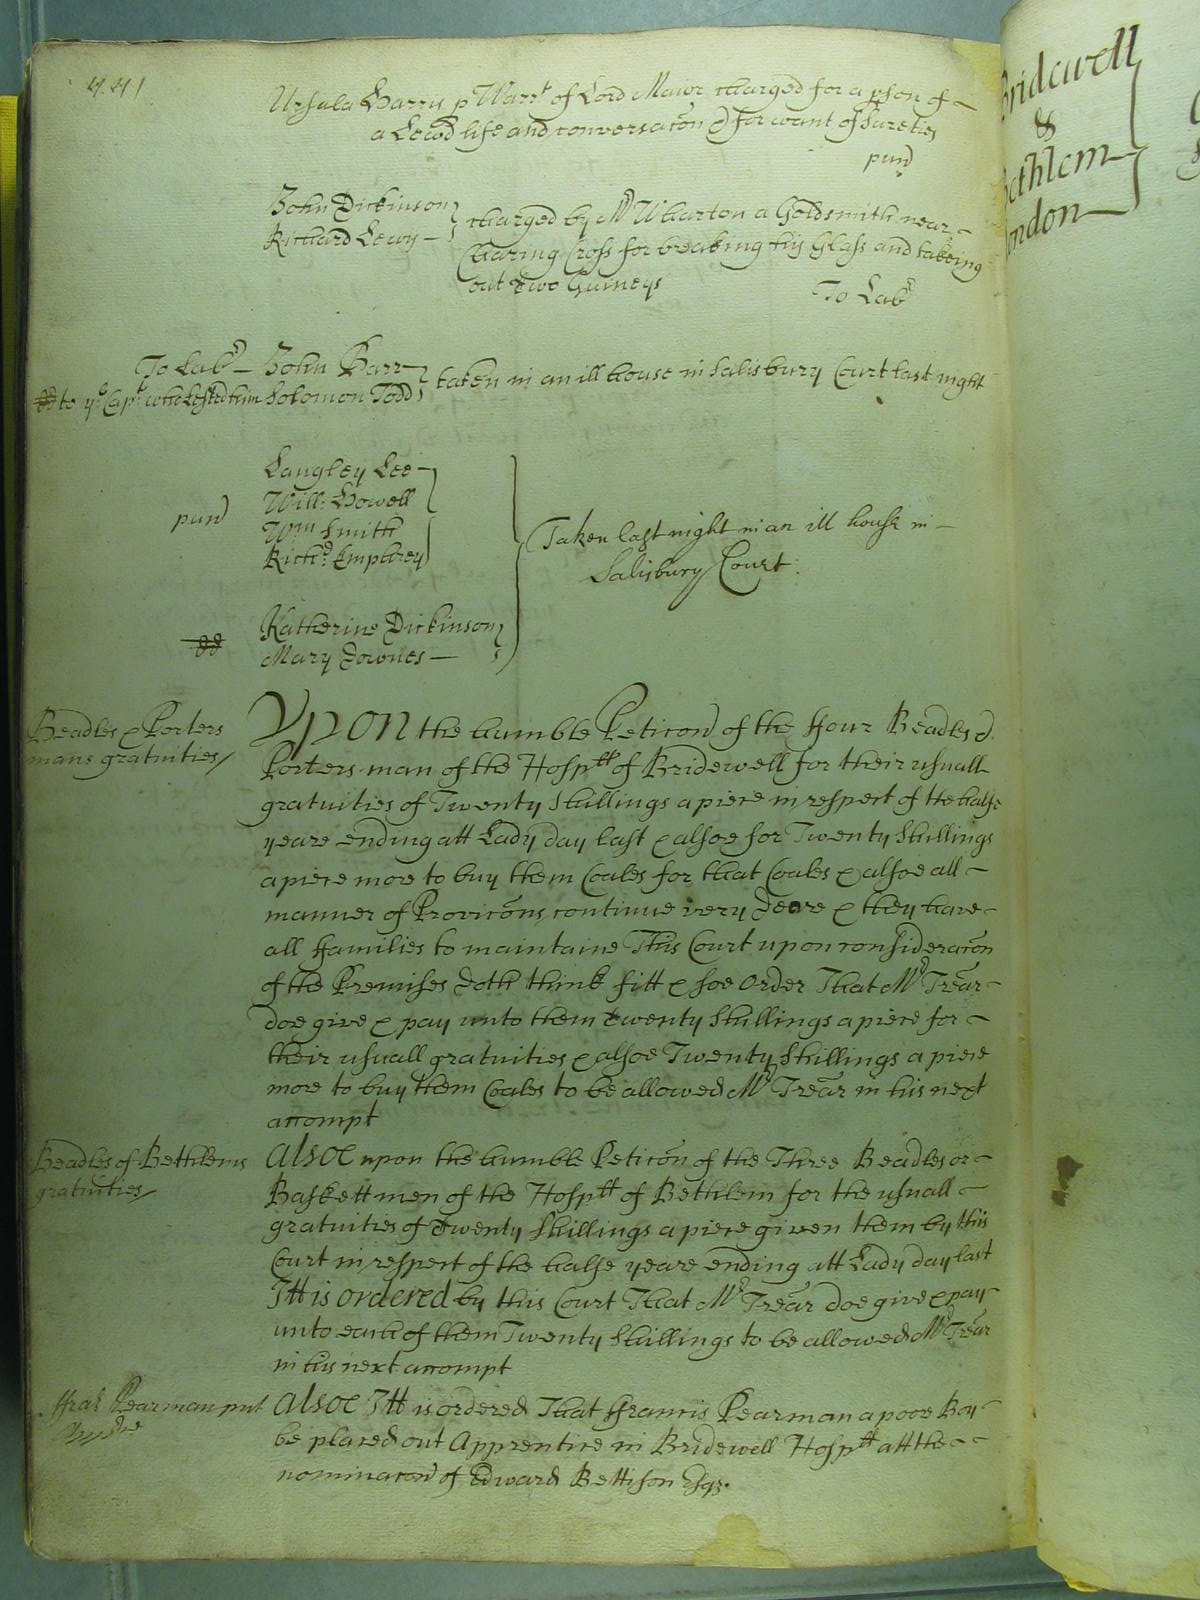 441
Ursula Harris p Warrt of Lord Maior charged for a pson of
a Lewd life and conversacon & for want of Sureties
pun
John Dickinson
Richard Lewy
charged by Mr Wharton a Goldsmith near
Charing Cross for breaking his Glass and takeing
out two Guineys
To Labr
To Labr John Barr
dd to ye Capt who Listed him Solomon Todd
taken in an ill house in Salisbury Court last night
Langley Lee
Will: Howell
pun
Wm Smith
Richd: Emphrey
Taken last night in an ill house in
Salisbury Court:
Katherine Dickinson
dd
Mary Downes
Beadles & Porters
mans gratuities/
Upon the humble Peticon of the ffour Beadles &
Porters man of the Hospll of Bridewell for their usuall
gratuities of Twenty Shillings a piece in respect of the halfe
yeare ending att Lady day last & alsoe for Twenty Shillings
a piece more to buy them Coales for that Coales & alsoe all
manner of Provicons continue very deare & they have
all ffamilies to maintaine This Court upon consideracon
of the Premises doth think fitt & soe order That Mr Trear
doe give & pay unto them twenty Shillings a piece for
their usuall gratuities & alsoe Twenty Shillings a piece
more to buy them Coales to be allowed Mr Trear in his next
accompt
Beadles of Bethlems
gratuities/
Alsoe upon the humble Peticon of the Three Beadles or
Baskett men of the Hospll of Bethlem for the usuall
gratuities of twenty Shillings a piece given them by this
Court in respect of the halfe yeare ending att Lady day last
Itt is ordered by this Court That Mr Trear doe give & pay
unto each of them Twenty Shillings to be allowed Mr Trear
in his next accompt
ffras Pearman put
Alsoe Itt is ordered That ffrancis Pearman a poore Boy
be placed out Apprentice in Bridewell Hospll att the
nominacon of Edward Bettison Esqr.
Bridewell
&
Bethlem
London